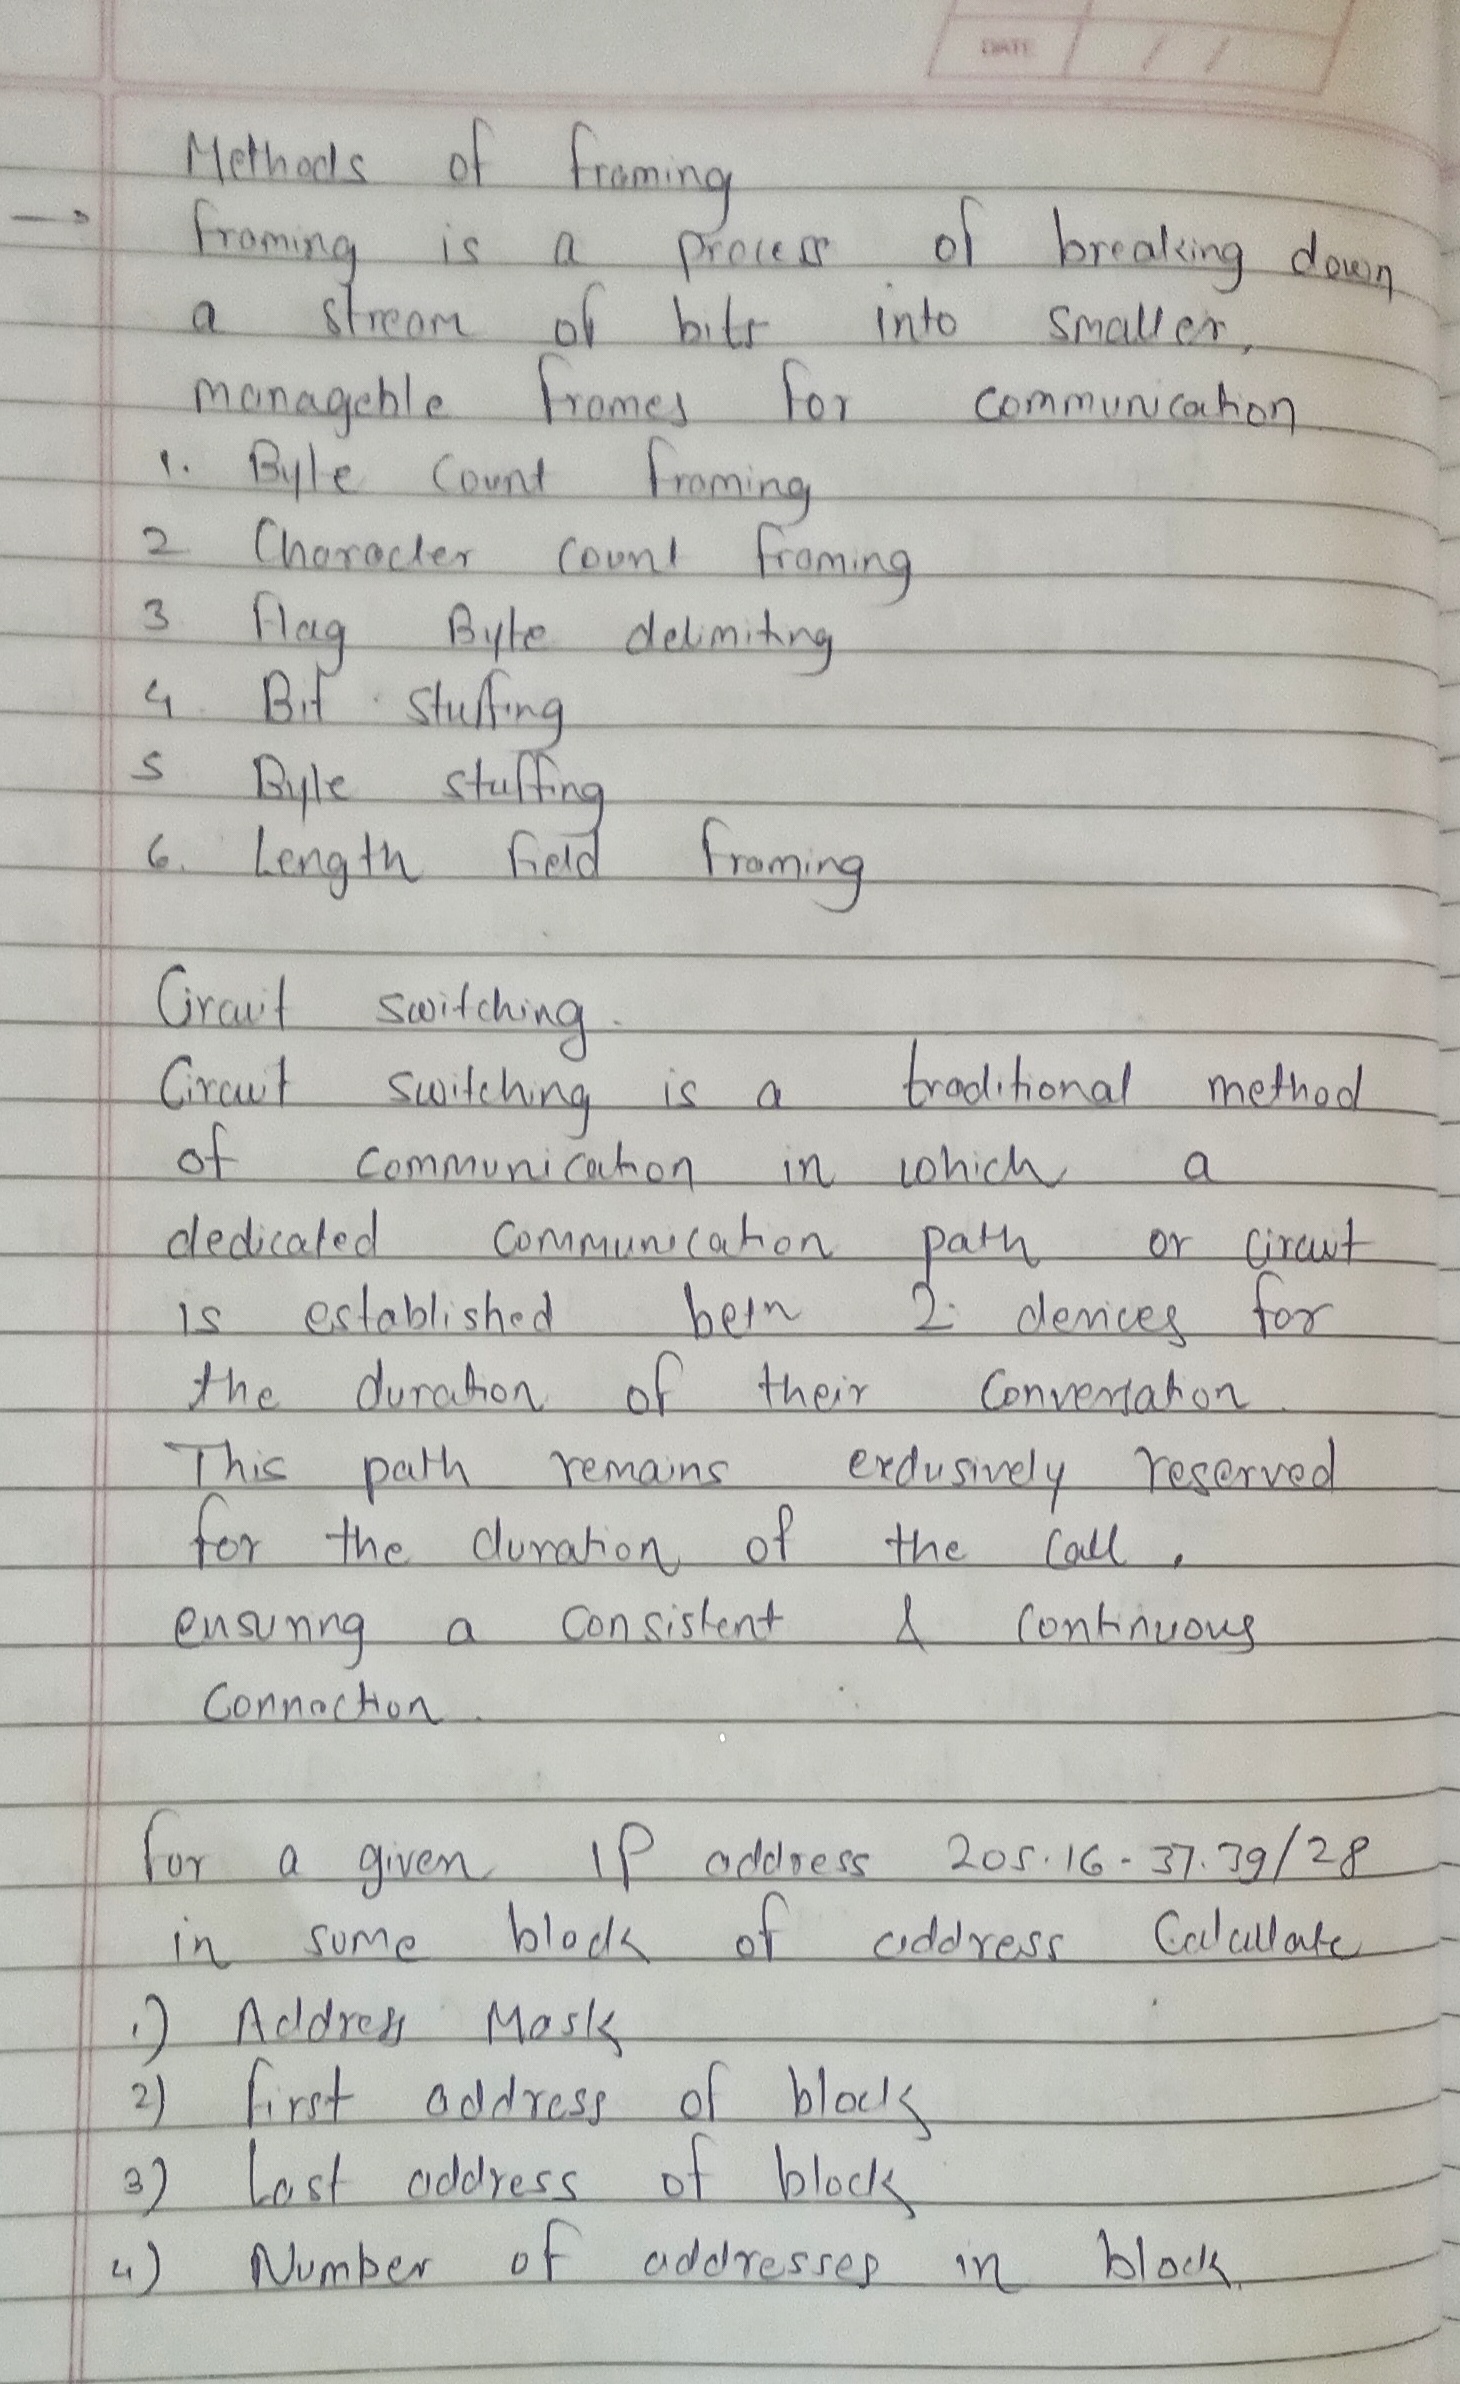 DATE / /
Methods of framing
→ framing is a process of breaking down
a stream of bits into smaller,
managable frames for communication
1. Byte count framing
2 Character count framing
3 flag Byte delimiting
4. Bit stuffing
5 Byte stuffing
6. Length field framing
Circuit switching.
Circuit switching is a traditional method
of communication in which a
dedicated communication path or circuit
is established betn 2 devices for
the duration of their conversation.
This path remains exclusively reserved
for the duration of the call,
ensuring a consistent & continuous
connection.
for a given IP address 205.16.37.39/28
in some block of address Calculate
1) Address Mask
2) first address of block
3) Last address of block
4) Number of addresses in block.